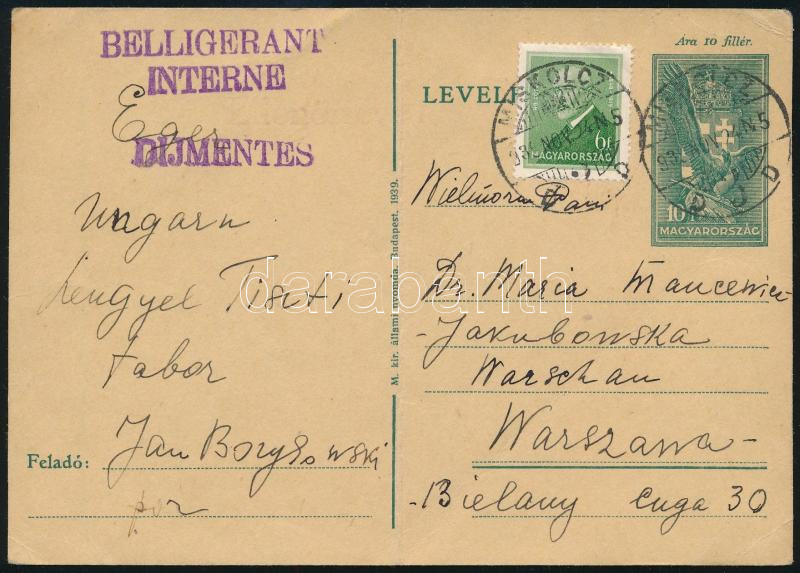 BELLIGERANT
INTERNE
Eger
DIJMENTES
Ungarn
Lengyel Tiszti
Tabor
Feladó: Jan Borysowski
por
M. kir. állami nyomda. Budapest. 1939.
Ara 10 fillér.
LEVELE
MISKOLCZ
6f
MAGYARORSZÁG
10f
MAGYARORSZÁG
Wielmożna Pani
Dr. Maria
Jakubowska
Warschau
Warszawa-
-Bielany Cuga 30
darabanth